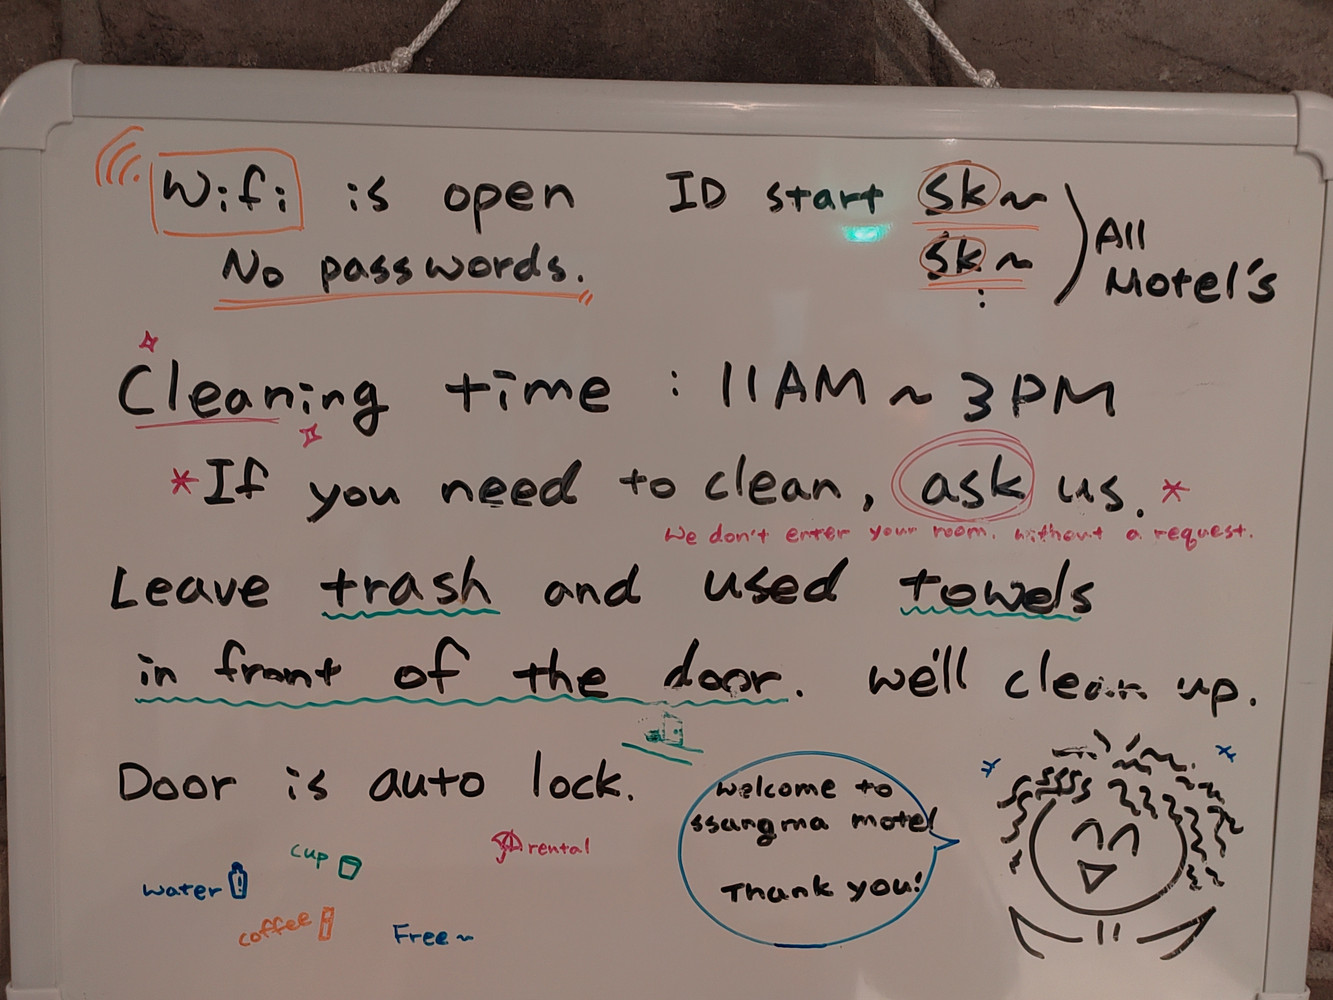 Wifi is open ID start sk~
No passwords. sk~
:
All
Motel's
Cleaning time : 11AM ~ 3PM
*If you need to clean, ask us.*
We don't enter your room, without a request.
Leave trash and used towels
in front of the door. we'll clean up.
Door is auto lock.
cup
rental
water
coffee
Free~
Welcome to
ssangma motel
Thank you!